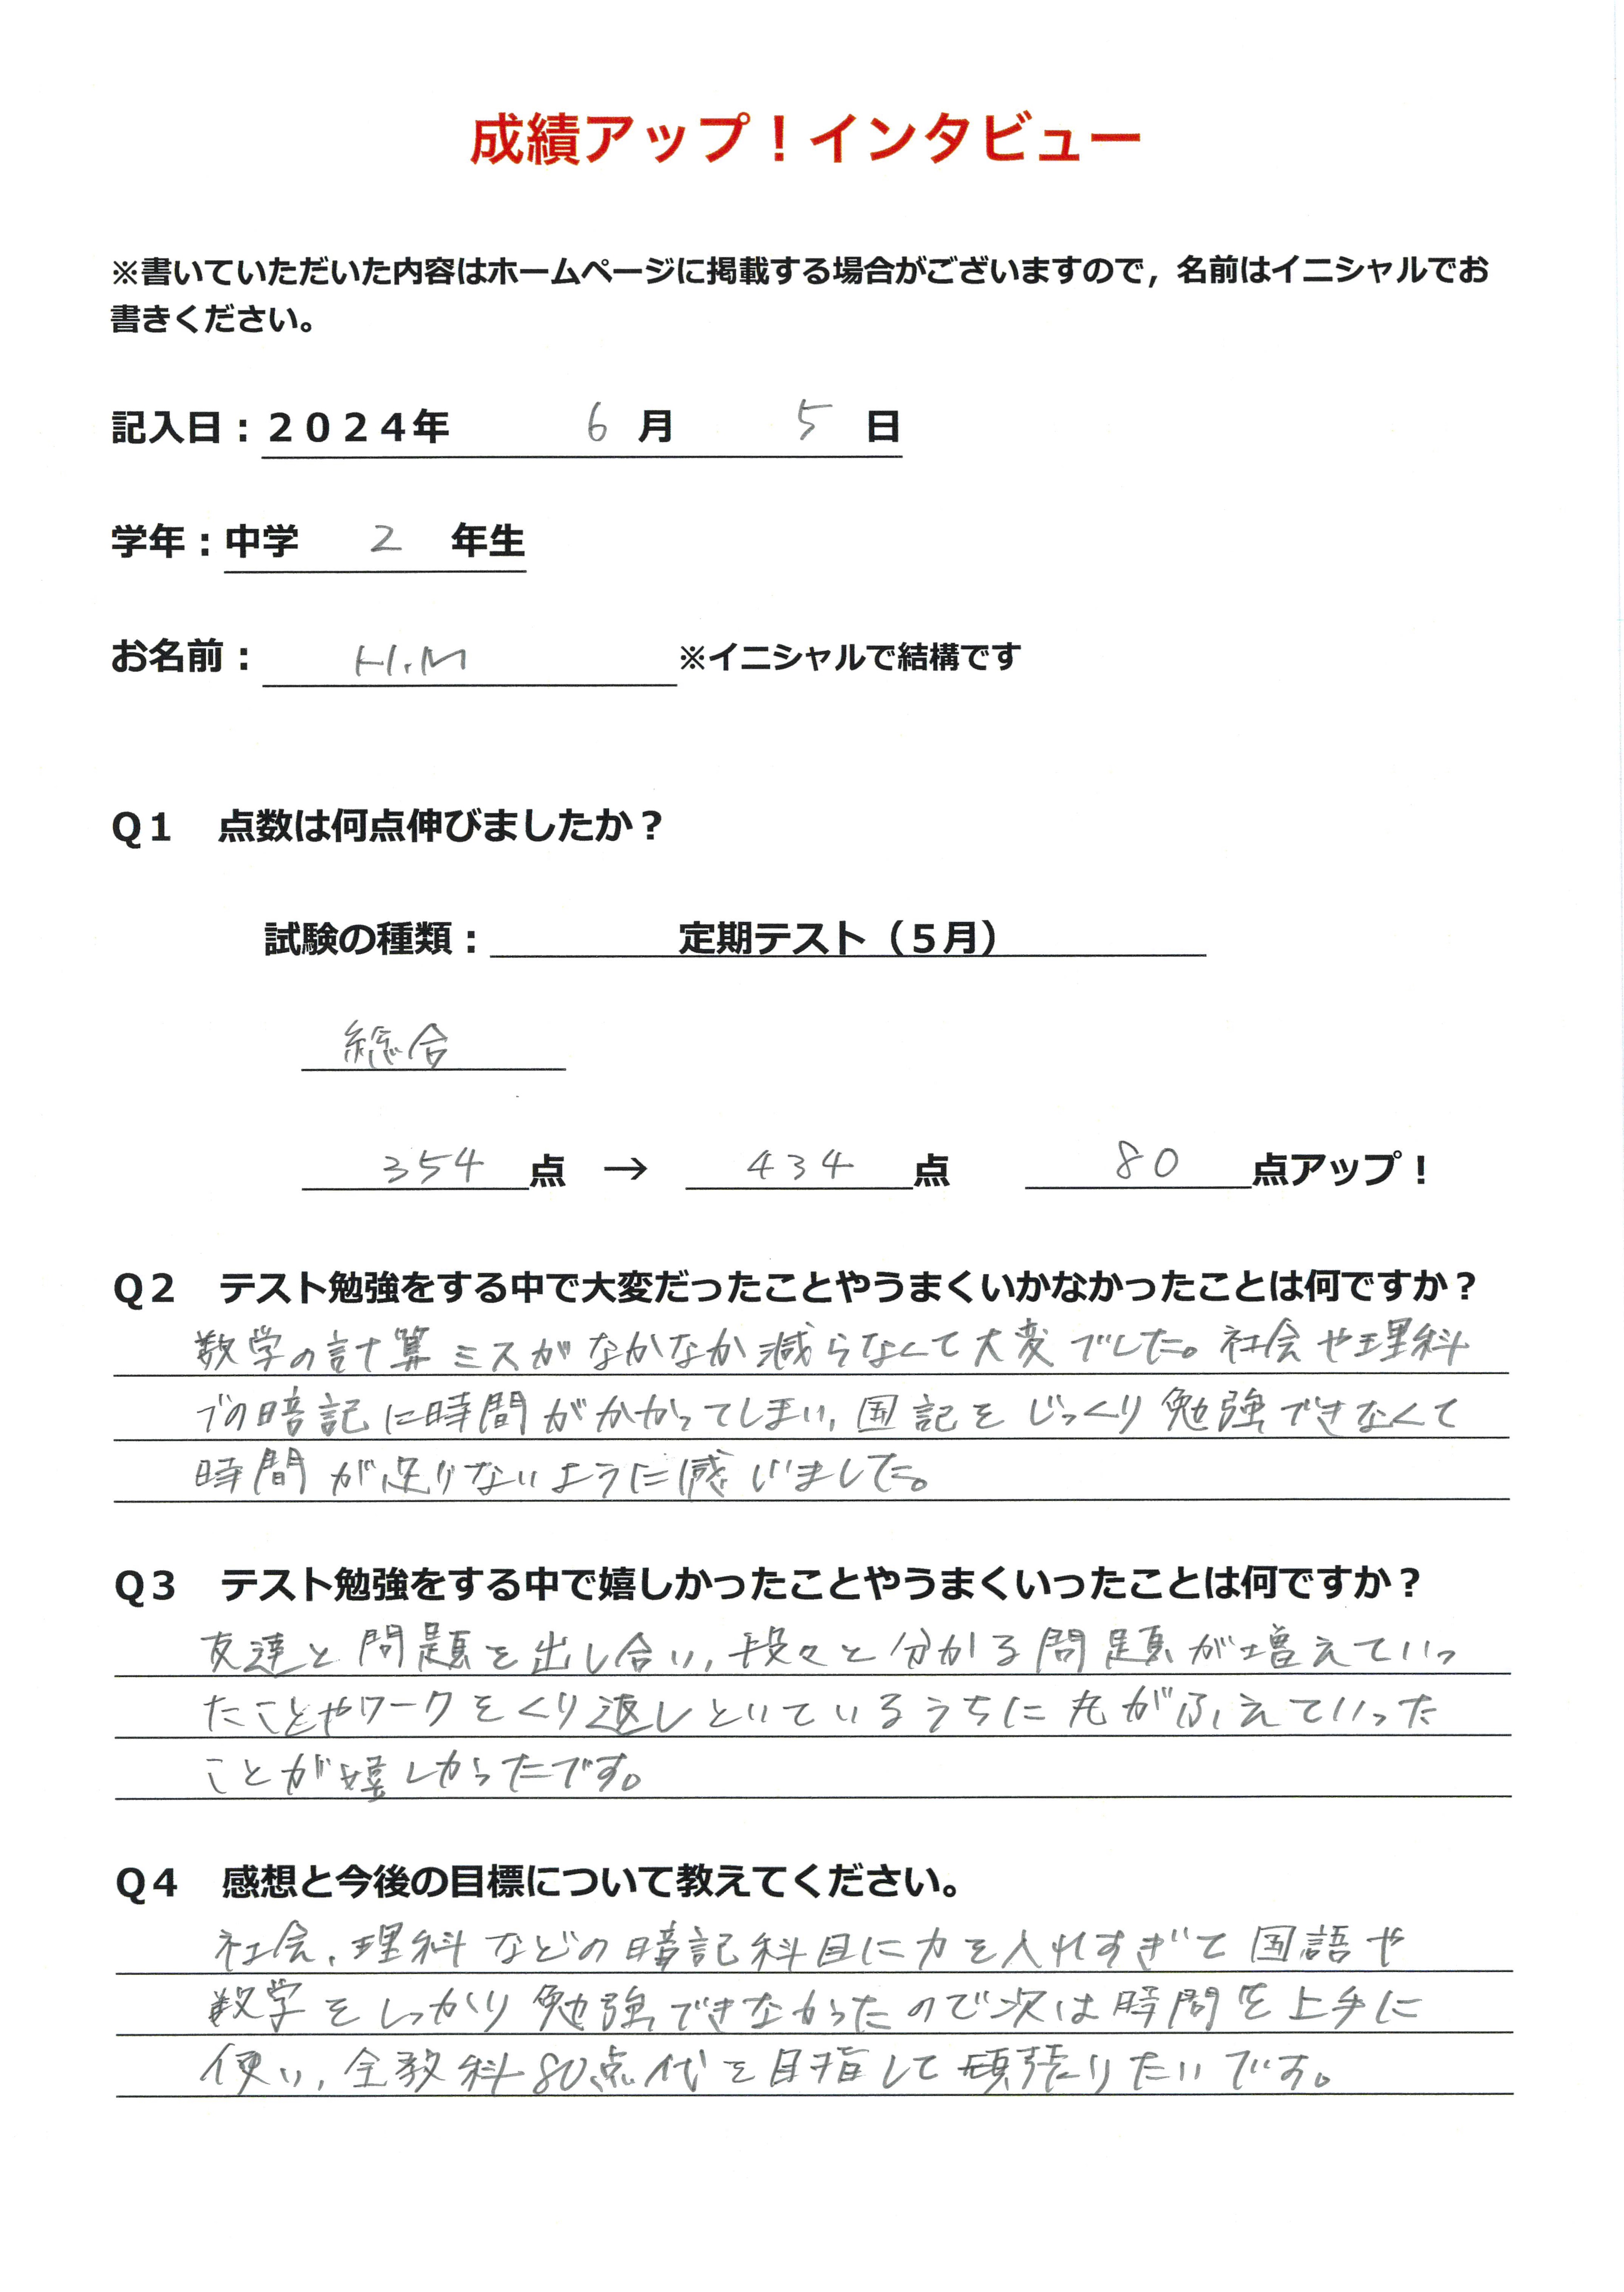 成績アップ！インタビュー
※書いていただいた内容はホームページに掲載する場合がございますので，名前はイニシャルでお
書きください。
記入日：２０２４年 6 月 5 日
学年：中学 2 年生
お名前： H.M ※イニシャルで結構です
Ｑ１ 点数は何点伸びましたか？
試験の種類： 定期テスト（５月）
総合
354 点 → 434 点 80 点アップ！
Ｑ２ テスト勉強をする中で大変だったことやうまくいかなかったことは何ですか？
数学の計算ミスがなかなか減らなくて大変でした。社会や理科
での暗記に時間がかかってしまい，国記をじっくり勉強できなくて
時間が足りないように感じました。
Ｑ３ テスト勉強をする中で嬉しかったことやうまくいったことは何ですか？
友達と問題を出し合い，段々と分かる問題が増えていっ
たことやワークをくり返しといているうちに丸がふえていった
ことが嬉しかったです。
Ｑ４ 感想と今後の目標について教えてください。
社会，理科などの暗記科目に力を入れすぎて国語や
数学をしっかり勉強できなかったので次は時間を上手に
使い，全教科80点代を目指して頑張りたいです。